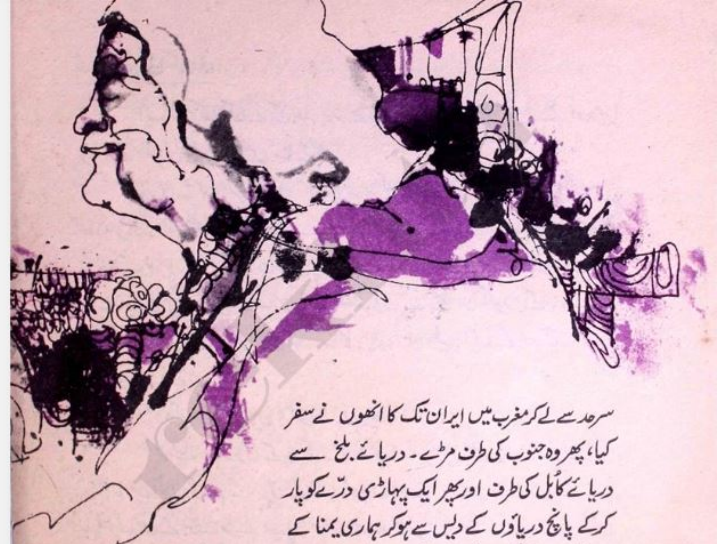 سرحد سے لے کر مغرب میں ایران تک کا انھوں نے سفر
کیا، پھر وہ جنوب کی طرف مڑے۔ دریائے بلخ سے
دریائے کابُل کی طرف اور پھر ایک پہاڑی درّے کو پار
کرکے پانچ دریاؤں کے دیس سے ہو کر ہماری یمنا کے